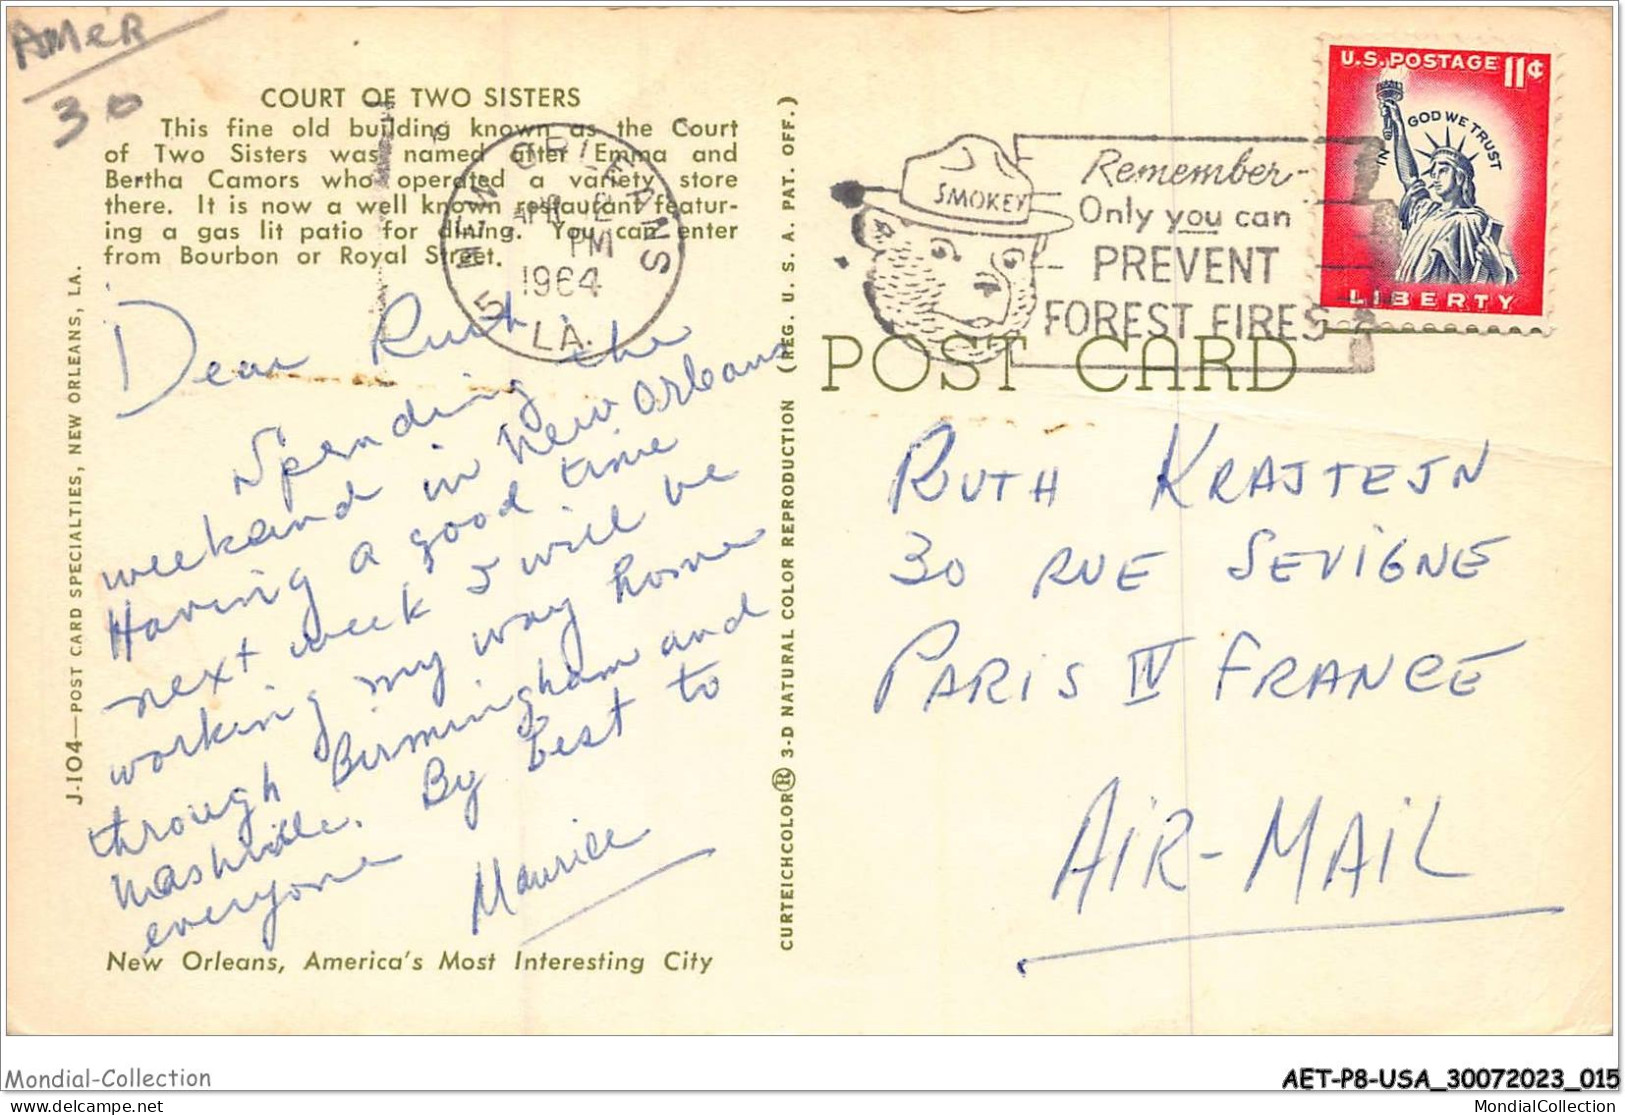 AMER
30
COURT OF TWO SISTERS
This fine old building known as the Court
of Two Sisters was named after Emma and
Bertha Camors who operated a variety store
there. It is now a well known restaurant featur-
ing a gas lit patio for dining. You can enter
from Bourbon or Royal Street.
NEW ORLEANS
APR
PM
1964
LA.
5
SMOKEY
Remember-
Only you can
PREVENT
FOREST FIRES
U.S. POSTAGE 11¢
IN GOD WE TRUST
LIBERTY
POST CARD
Dear Ruth,
Spending the
weekend in New Orleans
Having a good time
next week I will be
working my way home
through Birmingham and
Nashville. By best to
everyone
Maurice
New Orleans, America's Most Interesting City
J-104—POST CARD SPECIALTIES, NEW ORLEANS, LA.
CURTEICHCOLOR® 3-D NATURAL COLOR REPRODUCTION (REG. U. S. A. PAT. OFF.)
RUTH KRAJTEJN
30 RUE SEVIGNE
PARIS IV FRANCE
AIR-MAIL
Mondial-Collection
AET-P8-USA_30072023_015
delcampe.net
MondialCollection